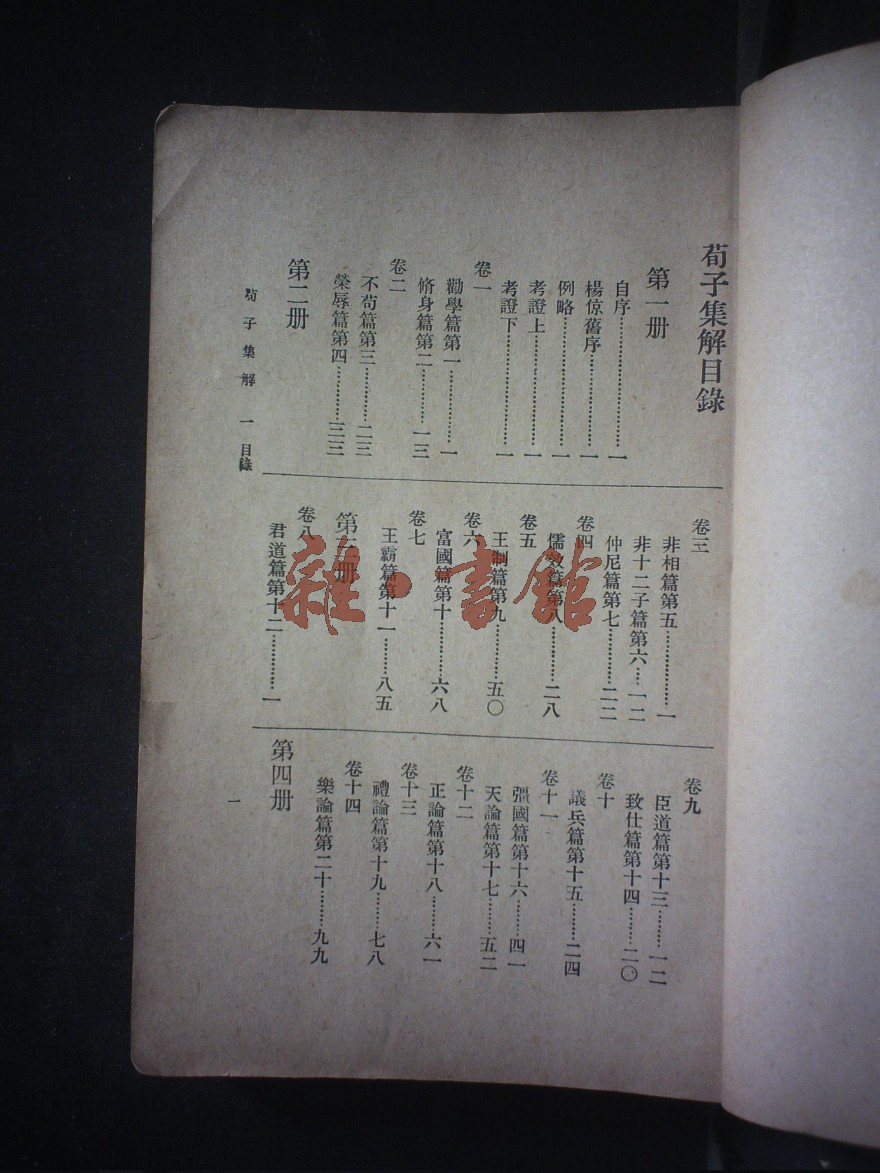 荀子集解目錄
第一册
自序……一
楊倞舊序……一
例略……一
考證上……一
考證下……一
卷一
勸學篇第一……一
脩身篇第二……一三
卷二
不苟篇第三……二三
榮辱篇第四……三三
第二册
卷三
非相篇第五……一
非十二子篇第六……一二
仲尼篇第七……二二
卷四
儒效篇第八……二八
卷五
王制篇第九……五〇
卷六
富國篇第十……六八
卷七
王霸篇第十一……八五
第三册
卷八
君道篇第十二……一
卷九
臣道篇第十三……一二
致仕篇第十四……二〇
卷十
議兵篇第十五……二四
卷十一
彊國篇第十六……四一
天論篇第十七……五二
卷十二
正論篇第十八……六一
卷十三
禮論篇第十九……七八
卷十四
樂論篇第二十……九九
第四册
荀子集解 一 目錄
一
雜·書館